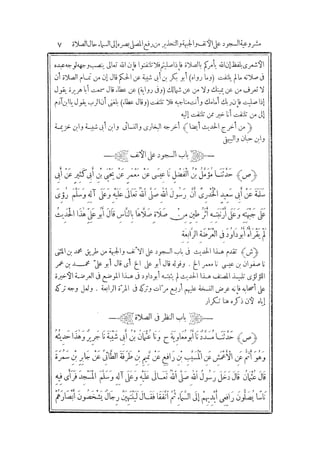 مشروعية السجود على الأنف والجبهة والتحذير من رفع المصلى بصره إلى السماء حال الصلاة ٧
الأشعرى بلفظ إن الله يأمركم بالصلاة فإذا صليتم فلا تلتفتوا فإن الله تعالى ينصب وجهه لوجه عبده
فى صلاته ما لم يلتفت (وما رواه) أبو بكر بن أبى شيبة عن الحكم قال إن من تمام الصلاة أن
لا تعرف من عن يمينك ولا من عن شمالك (وفى رواية) عن عطاء قال سمعت أبا هريرة يقول
إذا صليت فإن ربك أمامك وأنت مناجيه فلا تلتفت (وقال عطاء) بلغنى أن الرب يقول يا ابن آدم
إلى من تلتفت أنا خير ممن تلتفت إليه
(من أخرج الحديث أيضا) أخرجه البخارى والنسائى وابن أبى شيبة وابن خزيمة
وابن حبان والبيهقى
باب السجود على الأنف
(ص) حَدَّثَنَا مُؤَمَّلُ بْنُ الْفَضْلِ نَا عِيسَى عَنْ مَعْمَرٍ عَنْ يَحْيَى بْنِ أَبِى كَثِيرٍ عَنْ أَبِى
سَلَمَةَ عَنْ أَبِى سَعِيدٍ الْخُدْرِىِّ أَنَّ رَسُولَ اللهِ صَلَّى اللهُ تَعَالَى عَلَيْهِ وَعَلَى آلِهِ وَسَلَّمَ رُؤِىَ
عَلَى جَبْهَتِهِ وَعَلَى أَرْنَبَتِهِ أَثَرُ طِينٍ مِنْ صَلَاةٍ صَلَّاهَا بِالنَّاسِ قَالَ أَبُو عَلِىٍّ هٰذَا الْحَدِيثُ
لَمْ يَقْرَأْهُ أَبُو دَاوُدَ فِى الْعَرْضَةِ الرَّابِعَةِ
(ش) تقدم هذا الحديث فى باب السجود على الأنف والجبهة من طريق محمد بن المثنى
نا صفوان بن عيسى نا معمر الخ . وقوله قال أبو على الخ أى قال أبو على محمد بن
اللؤلؤى تلميذ المصنف هذا الحديث لم يثبته أبو داود فى هذا الموضع فى العرضة الأخيرة
على أصحابه فإنه عرض النسخة عليهم أربع مرات وتركه فى المرة الرابعة . ولعل وجه تركه
إياه لأن ذكره هنا تكرار
باب النظر فى الصلاة
(ص) حَدَّثَنَا مُسَدَّدٌ نَا أَبُو مُعَاوِيَةَ ح وَنَا عُثْمَانُ بْنُ أَبِى شَيْبَةَ نَا جَرِيرٌ وَهٰذَا حَدِيثُهُ
وَهُوَ أَتَمُّ عَنِ الْأَعْمَشِ عَنِ الْمُسَيَّبِ بْنِ رَافِعٍ عَنْ تَمِيمِ بْنِ طَرَفَةَ الطَّائِىِّ عَنْ جَابِرِ بْنِ سَمُرَةَ
قَالَ عُثْمَانُ قَالَ دَخَلَ رَسُولُ اللهِ صَلَّى اللهُ تَعَالَى عَلَيْهِ وَعَلَى آلِهِ وَسَلَّمَ الْمَسْجِدَ فَرَأَى فِيهِ
نَاسًا يُصَلُّونَ رَافِعِى أَيْدِيهِمْ إِلَى السَّمَاءِ ثُمَّ اتَّفَقَا فَقَالَ لَيَنْتَهِيَنَّ رِجَالٌ يَشْخَصُونَ أَبْصَارَهُمْ